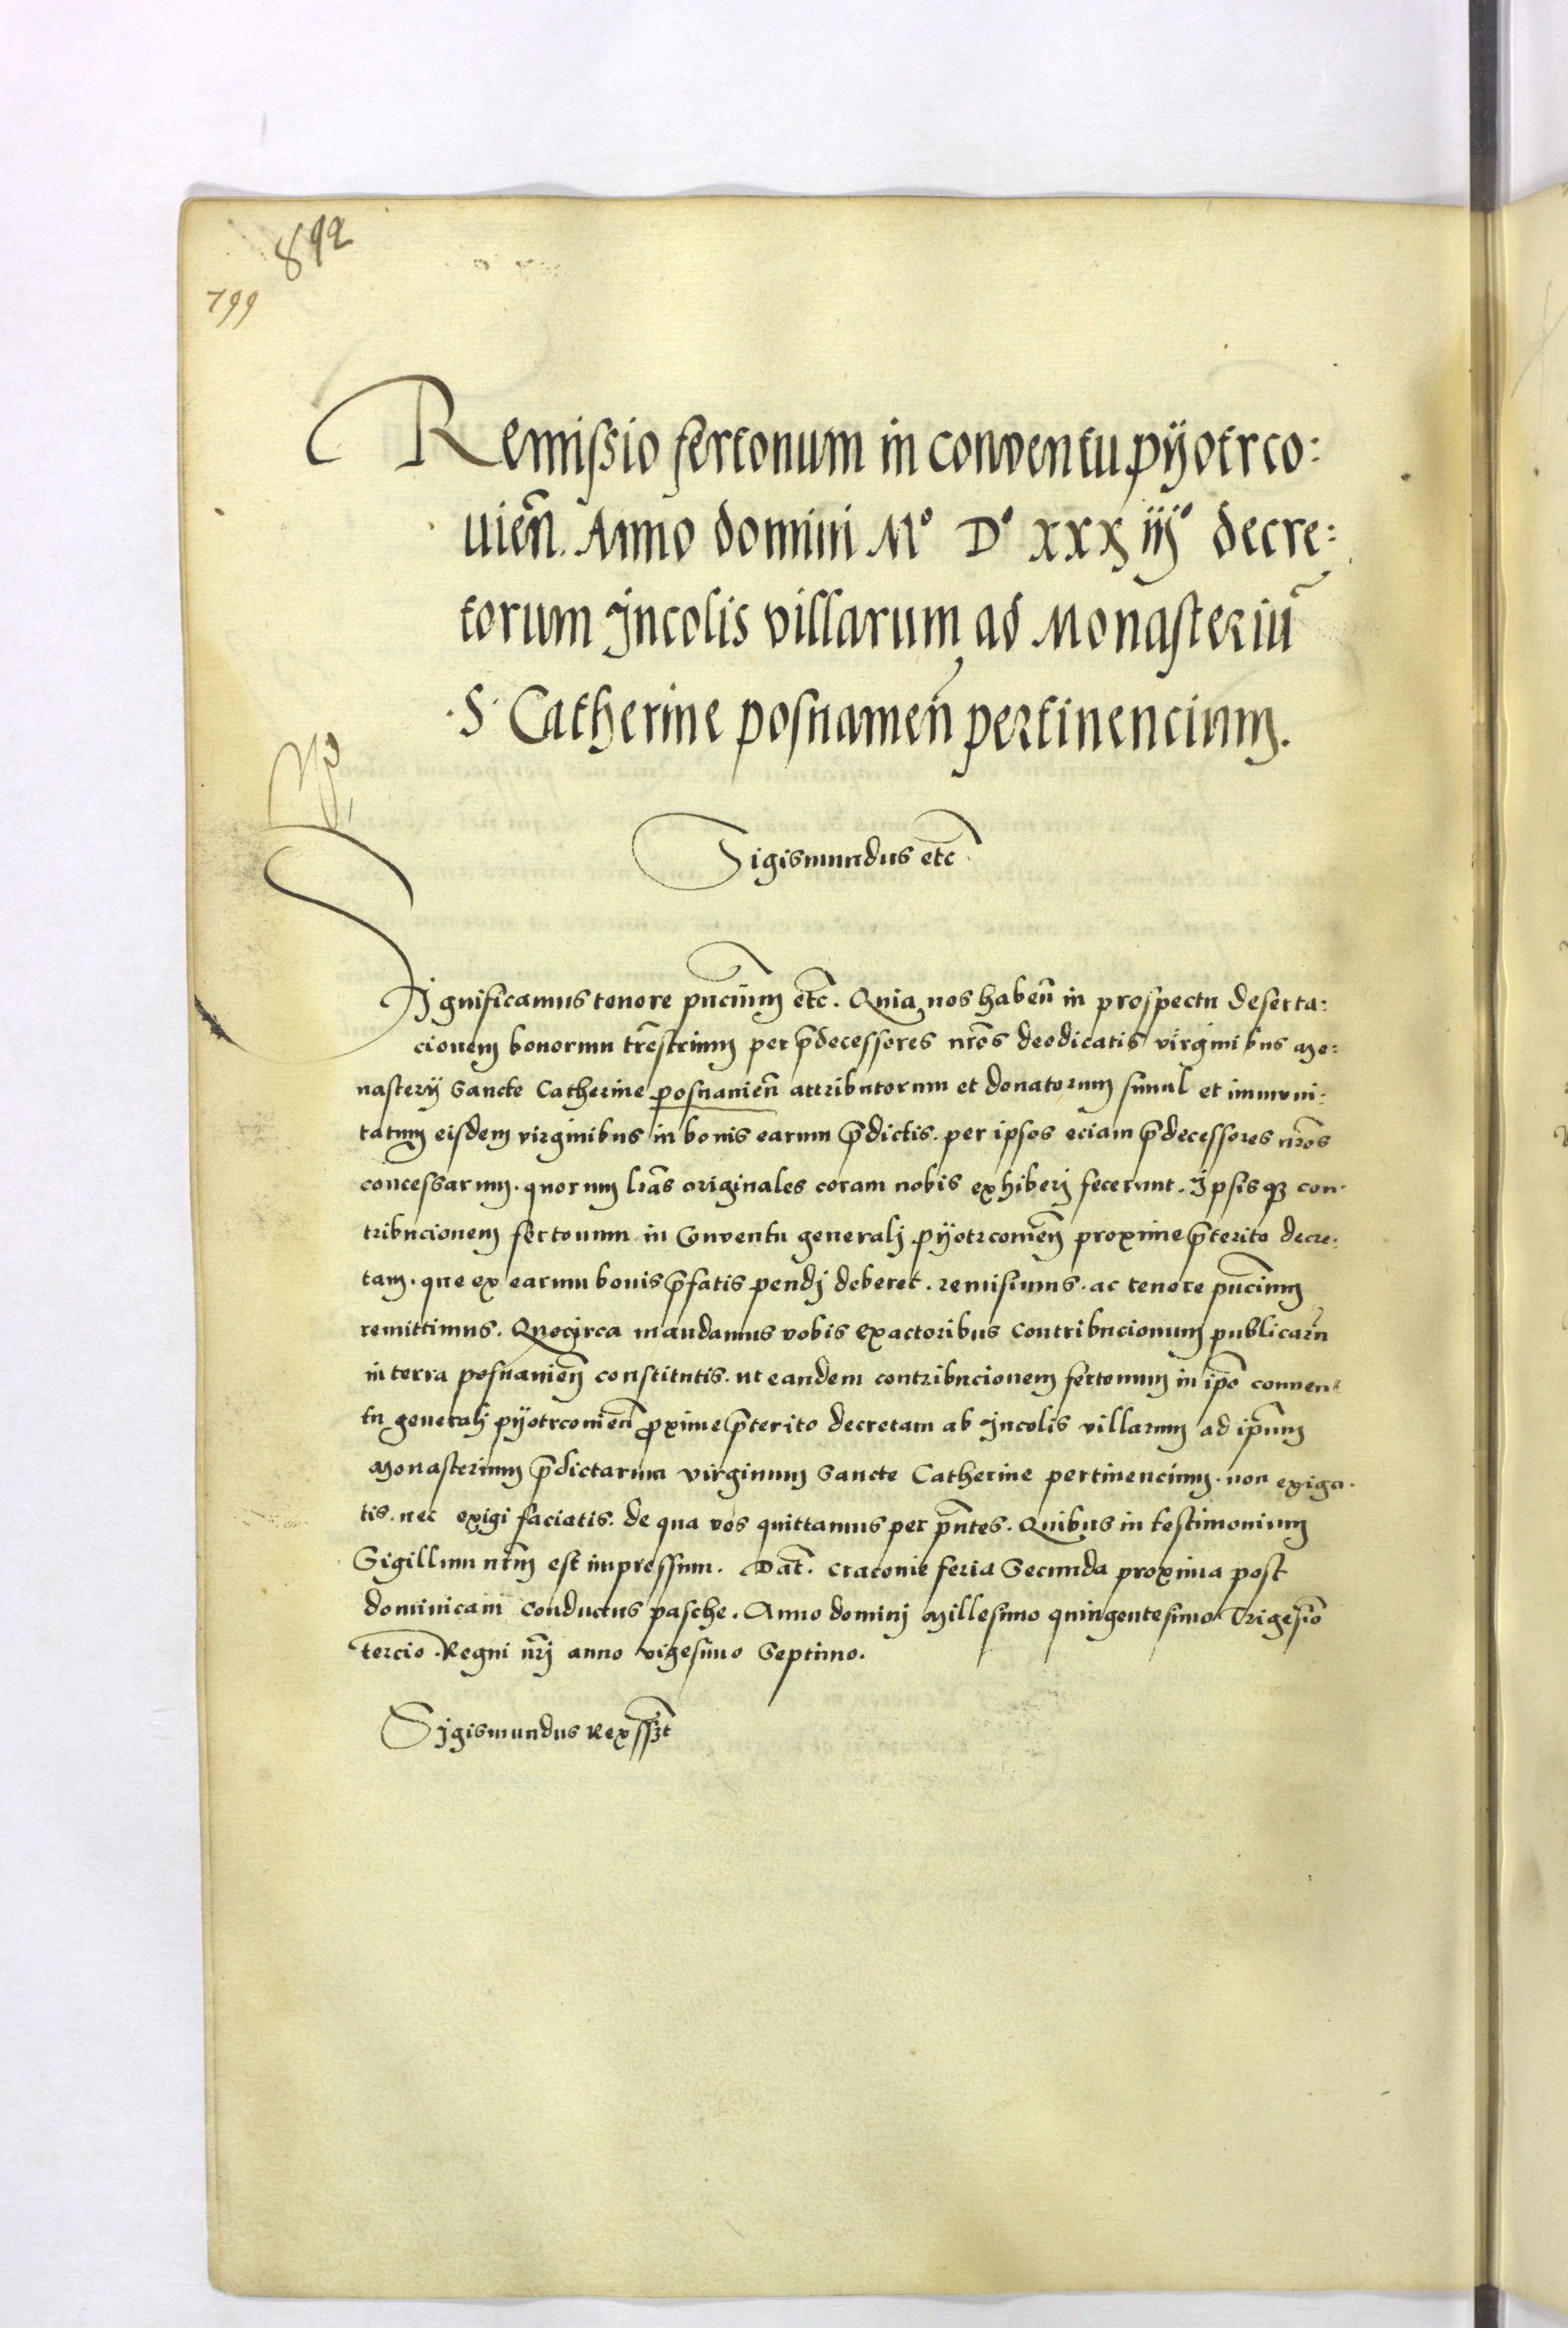 892
799
Remissio fertonum in conventu pyotrco:
uien̄. Anno domini Mº Dº xxx iijº decre:
torum Incolis villarum ad Monasteriū
S. Catherine posnanien̄ pertinencium.
Sigismundus etc̄
Significamus tenore pn̄cium etc̄. Quia nos haben̄ in prospectu deserta:
cionem bonorum trēstrium per p̄decessores nrōs deodicatis virginibus mo:
nasterij Sancte Catherine posnanien̄ attributorum et donatorum simul et immuni:
tatum eisdem virginibus in bonis earum p̄dictis. per ipsos eciam p̄decessores nrōs
concessarum. quorum lrās originales coram nobis exhiberj fecerunt. Ipsisqꝫ con
tribucionem fertonum in Conventu generalj pyotrcouien̄ proxime p̄terito decre:
tam. que ex earum bonis p̄fatis pendj deberet. remisimus. ac tenore pn̄cium
remittimus. Quocirca mandamus vobis exactoribus contribucionum publicarū
in terra posnanien̄ constitutis. ut eandem contribucionem fertonum in ip̄o conven
tu generalj pyotrcouien̄ ꝓxime p̄terito decretam ab Incolis villarum ad ip̄um
Monasterium p̄dictarum virginum Sancte Catherine pertinencium. non exiga
tis. nec exigi faciatis. de qua vos quittamus per pn̄tes. Quibus in testimonium
Sigillum nrm̄ est impressum. Dat̄. Cracouie feria Secunda proxima post
dominicam Conductus pasche. Anno dominj Millesimo quingentesimo Trigesīo
tercio. Regni nrj̄ anno vigesimo Septimo.
Sigismundus Rex ssꝫt